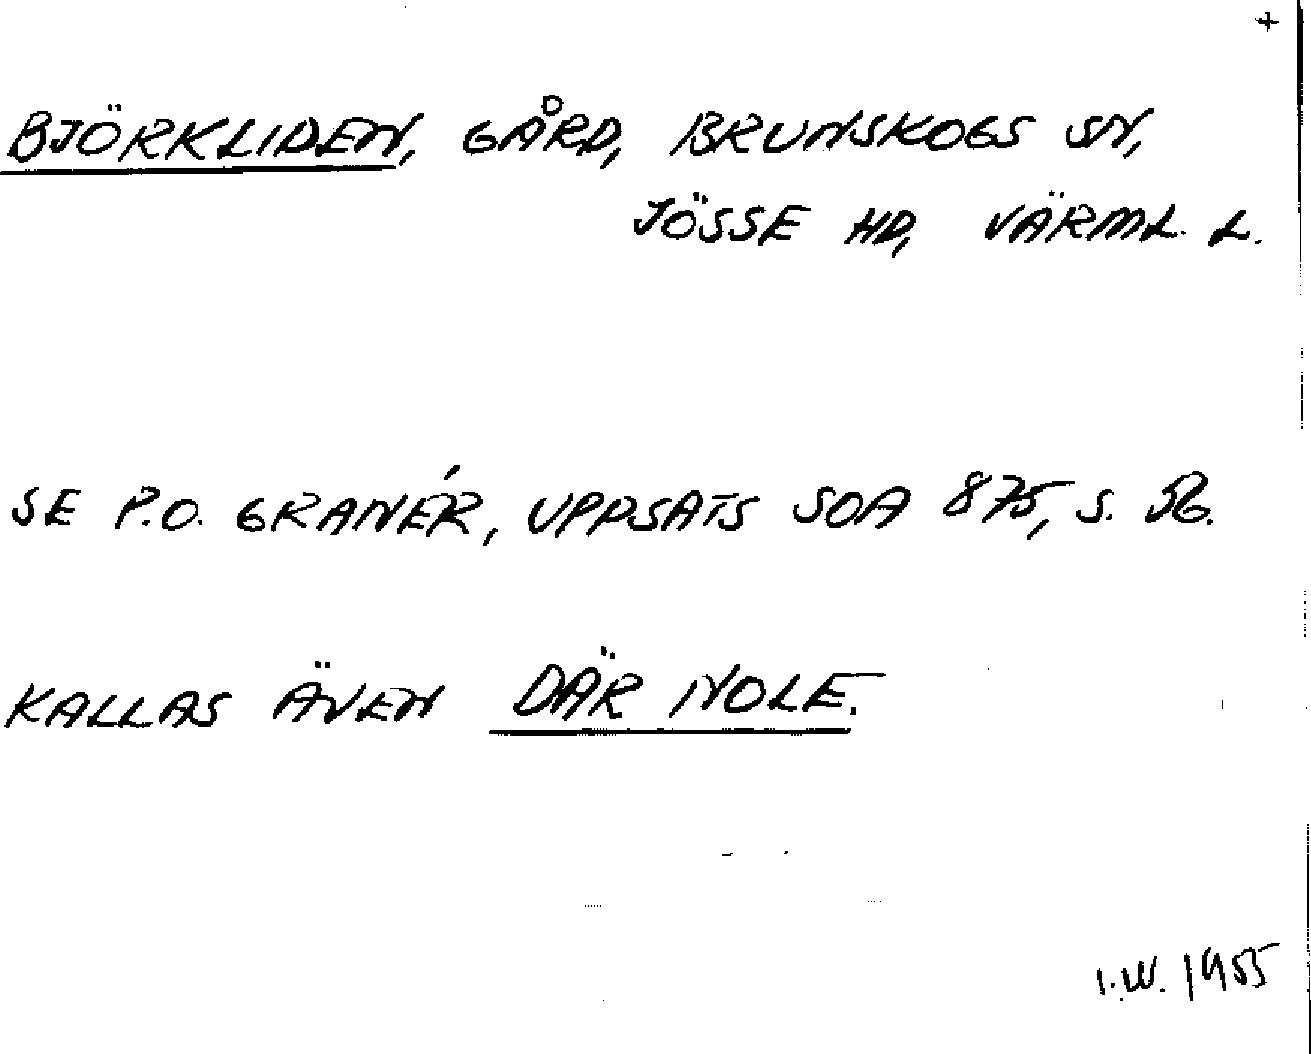 +
BJÖRKLIDEN, GÅRD, BRUNSKOGS SN,
JÖSSE HD, VÄRML. L.
SE P.O. GRANÉR, UPPSATS SOA 875, S. 56.
KALLAS ÄVEN DÄR NOLE.
I.W. 1955